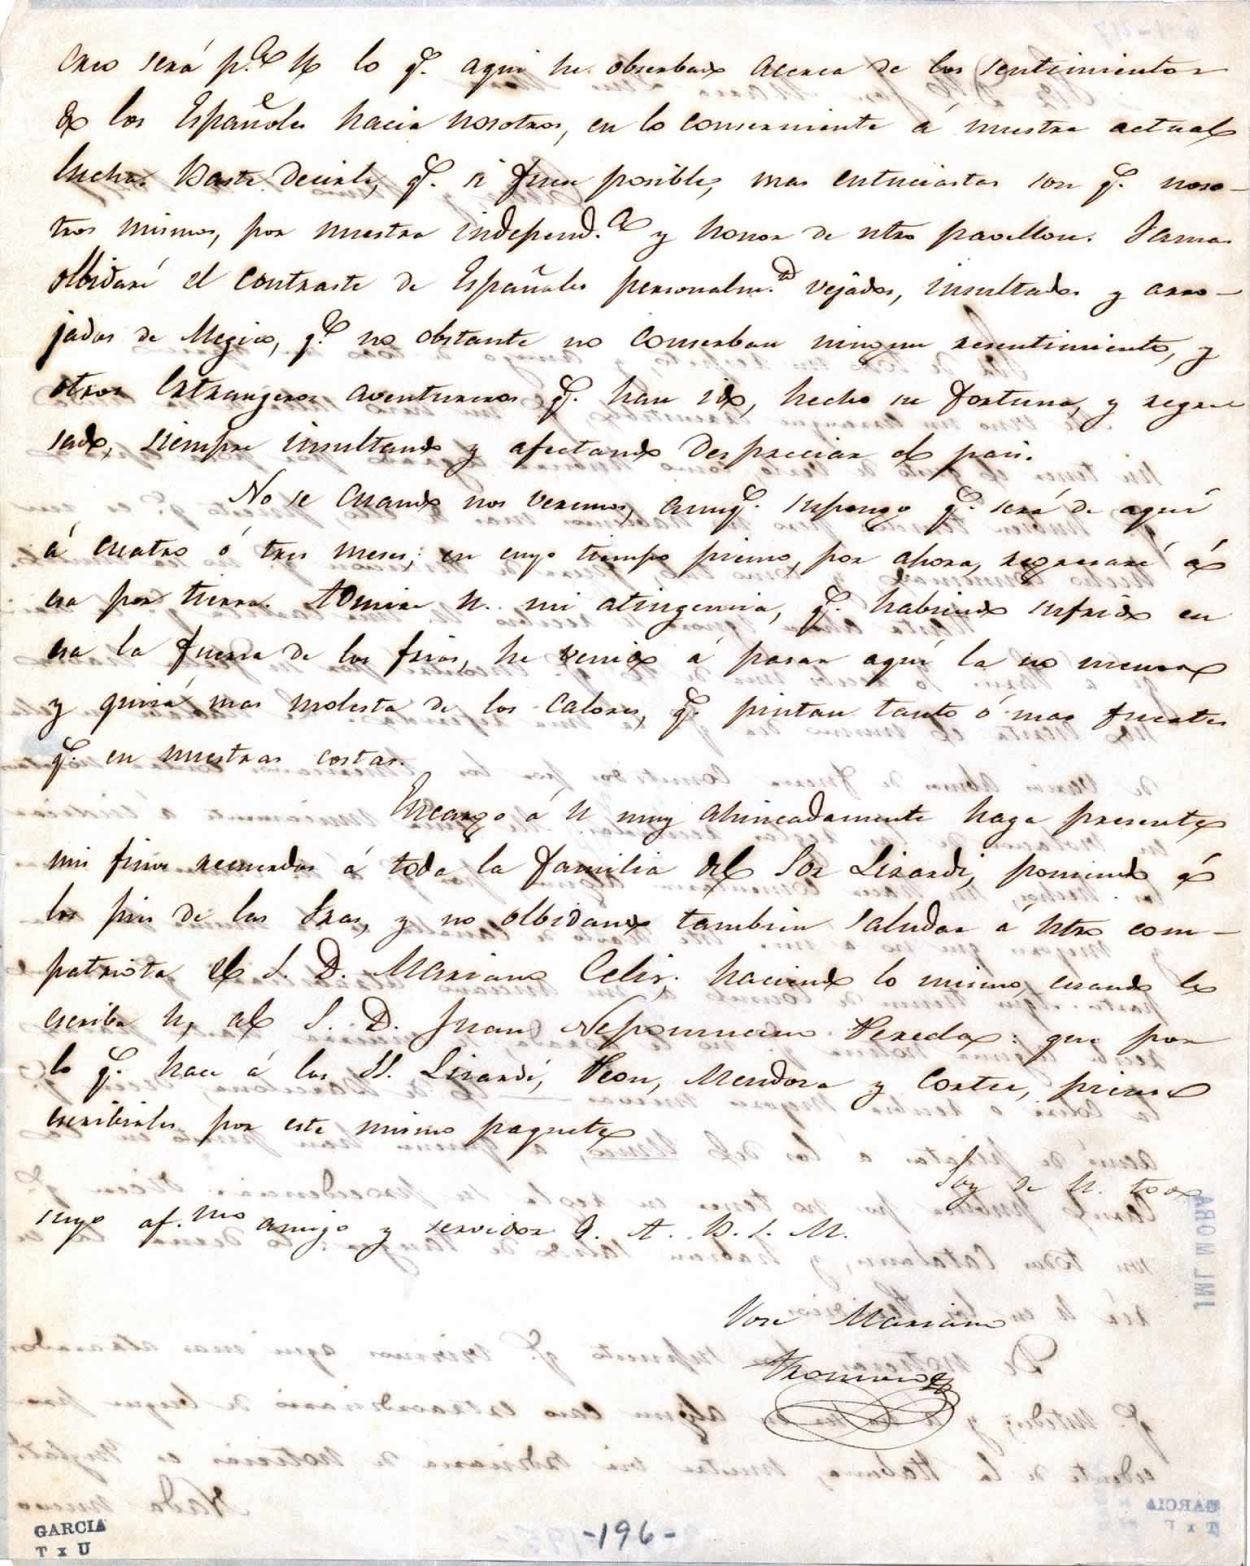 Creo será p.ª U lo q.e aqui he observado acerca de los sentimientos
de los Españoles hacia nosotros, en lo conserniente á nuestra actual
lucha. Baste decirle, q.e si fuera posible, mas entuciastas son q.e noso-
tros mismos, por nuestra independ.a y honor de ntro pavellon. Jamas
olbidaré el contraste de Españoles personalm.te vejados, insultados y arro-
jados de Megico, q.e no obstante no conserban ningun resentimiento, y
otros Extrangeros aventureros q.e han ido, hecho su fortuna, y regre
sado, siempre insultando y afectando despreciar el pais.
No se cuando nos veremos, aunq.e supongo q.e será de aquí
á cuatro ó tres meses; en cuyo tiempo pienso, por ahora, regresar á
esa por tierra. Admire U. mi atingencia, q.e habiendo sufrido en
esa la fuerza de los frios, he venido á pasar aquí la no menos
y quizá mas molesta de los calores, q.e pintan tanto ó mas fuertes
q.e en nuestras costas.
Encargo á U muy ahincadamente haga presente
mis finos recuerdos á toda la familia del Sor Lizardi, poniendo á
los pies de las Sras, y no olbidando tambien saludar á ntro com-
patriota el S. D. Mariano Celis; haciendo lo mismo, cuando le
escriba U, al S. D. Juan Nepomuceno Pereda: que por
lo q.e hace á los SS. Lizardi, Peon, Mendoza y Cortes, pienso
escribirles por este mismo paquete
Soy de U. todo
suyo af.mo amigo y servidor Q. A. B. S. M.
José Mariano
Troncoso
GARCIA
T x U
-196-
JML MORA
GARCIA
T x U